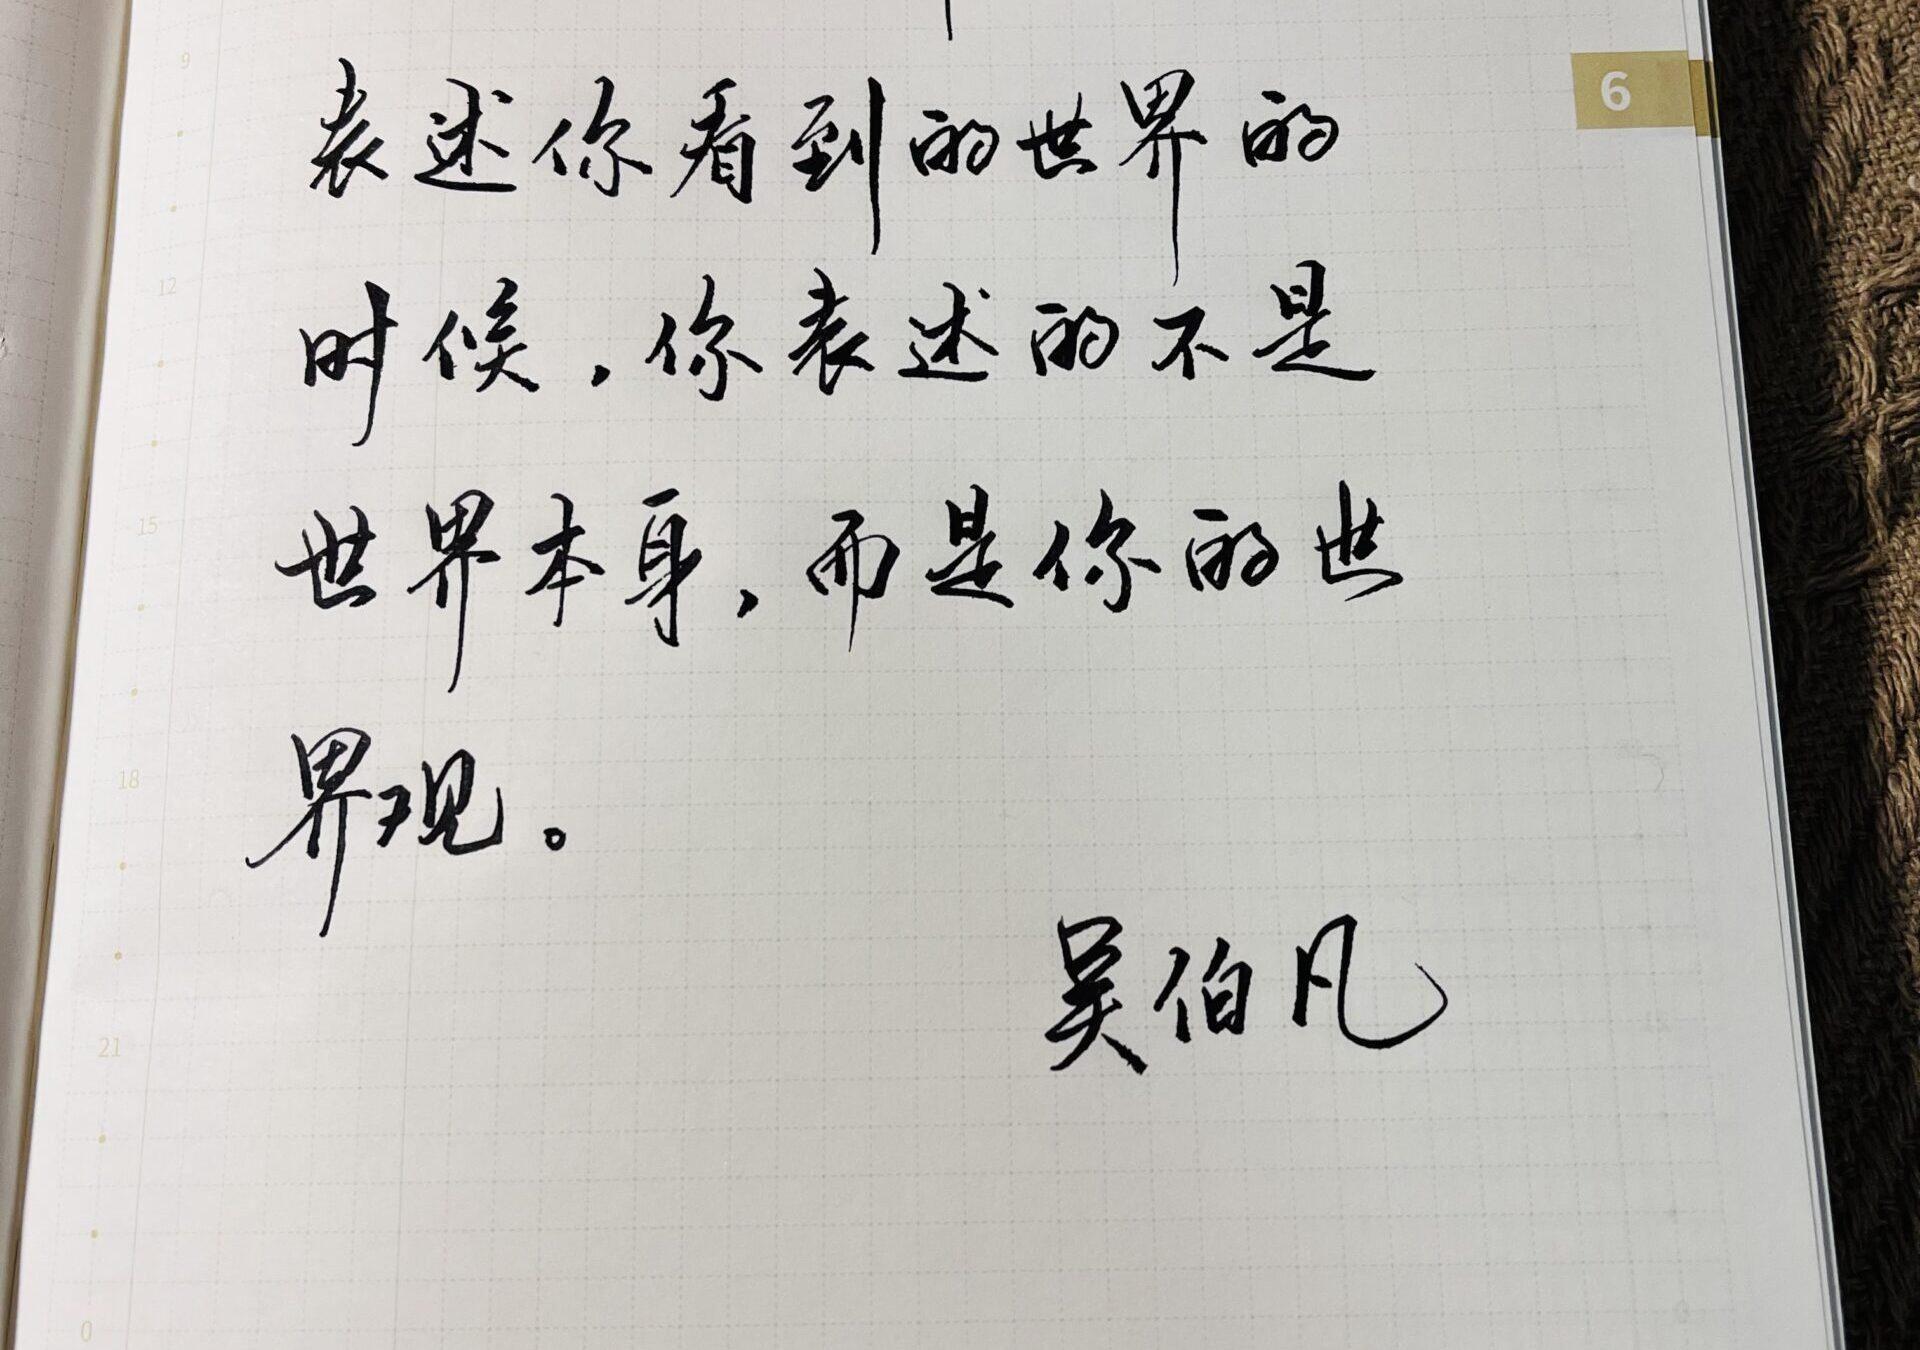 9
6
表述你看到的世界的
12
时候，你表述的不是
15
世界本身，而是你的世
18
界观。
吴伯凡
21
0